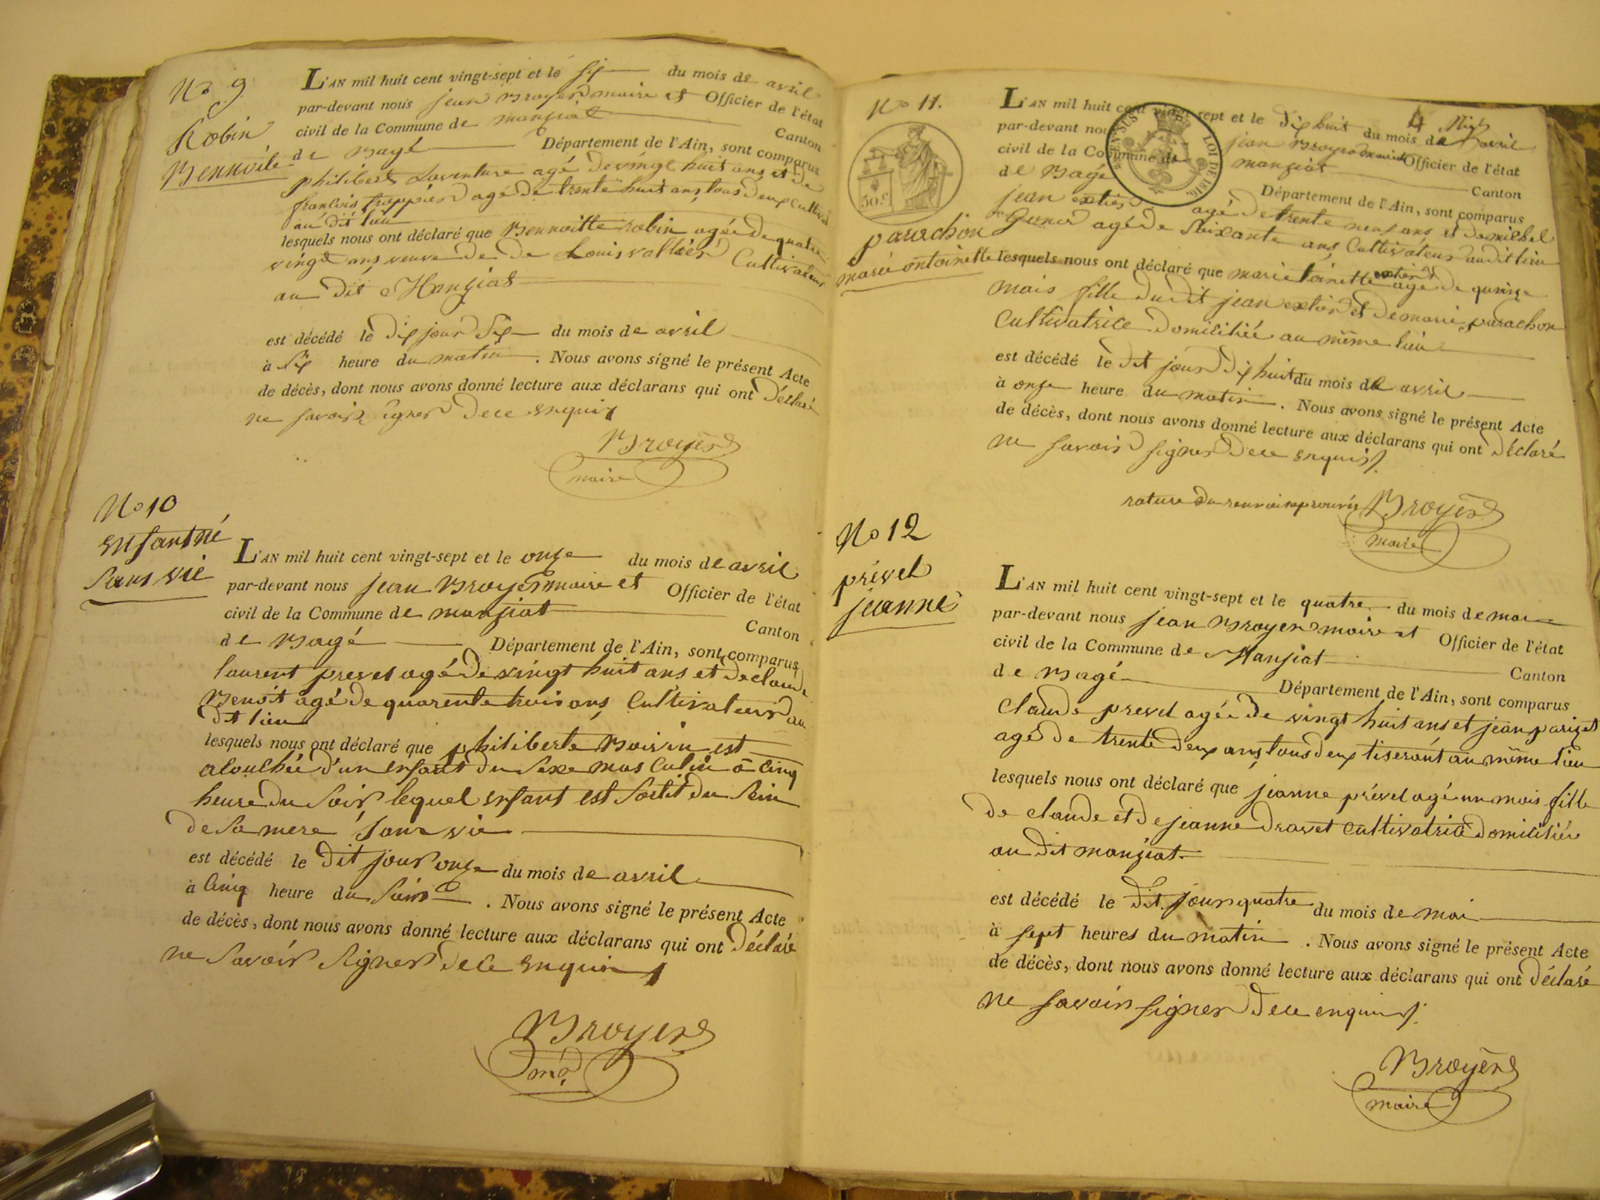 No 9
Robin
Bennoite
L'AN mil huit cent vingt-sept et le six du mois de avril
par-devant nous jean Broyer maire et Officier de l'état
civil de la Commune de manziat Canton
de Bagé Département de l'Ain, sont comparus
philibert Laventure agé de vingt huit ans et de
francois agé de trente huit ans tous deux
au dit lieu
lesquels nous ont déclaré que Bennoitte robin agée de quatre
vingt ans veuve de de Louis Cultivateur
au dit Manziat
est décédé le dix jour six du mois de avril
à six heure du matin . Nous avons signé le présent Acte
de décès, dont nous avons donné lecture aux déclarans qui ont déclaré
ne savoir signer de ce enquis
Broyer
maire
No 10
enfant né
sans vie
L'AN mil huit cent vingt-sept et le onze du mois de avril
par-devant nous jean Broyer maire et Officier de l'état
civil de la Commune de manziat Canton
de Bagé Département de l'Ain, sont comparus
laurent prevel agé de vingt huit ans et de claude
Benoit agé de quarente trois ans Cultivateurs au
dit lieu
lesquels nous ont déclaré que philiberte Boisin est
acouchée d'un enfant du sexe masculin à cinq
heure du soir lequel enfant est sortit du sein
de sa mere sans vie
est décédé le dit jour onze du mois de avril
à cinq heure du soir . Nous avons signé le présent Acte
de décès, dont nous avons donné lecture aux déclarans qui ont déclaré
ne savoir signer de ce enquis
Broyer
No 11.
50.c
LOI DE 1816
parachon
marie antoinette
L'AN mil huit cent vingt-sept et le dix huit du mois de avril
par-devant nous jean Broyer maire Officier de l'état
civil de la Commune de manziat Canton
de Bagé Département de l'Ain, sont comparus
jean agé de trente neuf ans et de michel
agé de soixante ans Cultivateurs au dit lieu
lesquels nous ont déclaré que marie toinette agé de quinze
mais fille du dit jean et de marie parachon
Cultivatrice domiciliée au même lieu
est décédé le dit jour dix huit du mois de avril
à onze heure du matin . Nous avons signé le présent Acte
de décès, dont nous avons donné lecture aux déclarans qui ont déclaré
ne savoir signer de ce enquis
rature du renvoi approuvé Broyer
maire
No 12
prével
jeanne
L'AN mil huit cent vingt-sept et le quatre du mois de mai
par-devant nous jean Broyer maire et Officier de l'état
civil de la Commune de Manziat Canton
de Bagé Département de l'Ain, sont comparus
claude prevel agée de vingt huit ans et jean parizet
agé de trente deux ans tous deux tiserant au même lieu
lesquels nous ont déclaré que jeanne prével agé un mois fille
de claude et de jeanne dravet cultivatrice domiciliée
au dit manziat
est décédé le dit jour quatre du mois de mai
à sept heures du matin . Nous avons signé le présent Acte
de décès, dont nous avons donné lecture aux déclarans qui ont déclaré
ne savoir signer de ce enquis
Broyer
maire